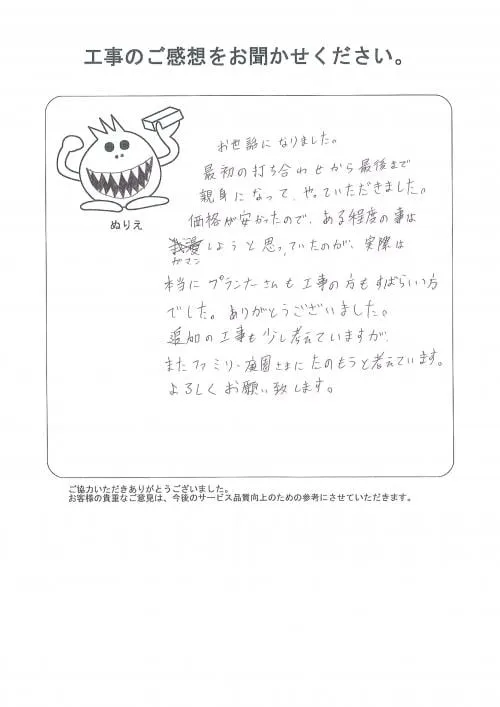 工事のご感想をお聞かせください。
ぬりえ
お世話になりました。
最初の打ち合わせから最後まで
親身になって、やっていただきました。
価格が安かったので、ある程度の事は
ガマン
しようと思っていたのが、実際は
本当にプランナーさんも工事の方もすばらしい方
でした。ありがとうございました。
追加の工事も少し考えていますが、
またファミリー庭園さまにたのもうと考えています。
よろしくお願い致します。
ご協力いただきありがとうございました。
お客様の貴重なご意見は、今後のサービス品質向上のための参考にさせていただきます。